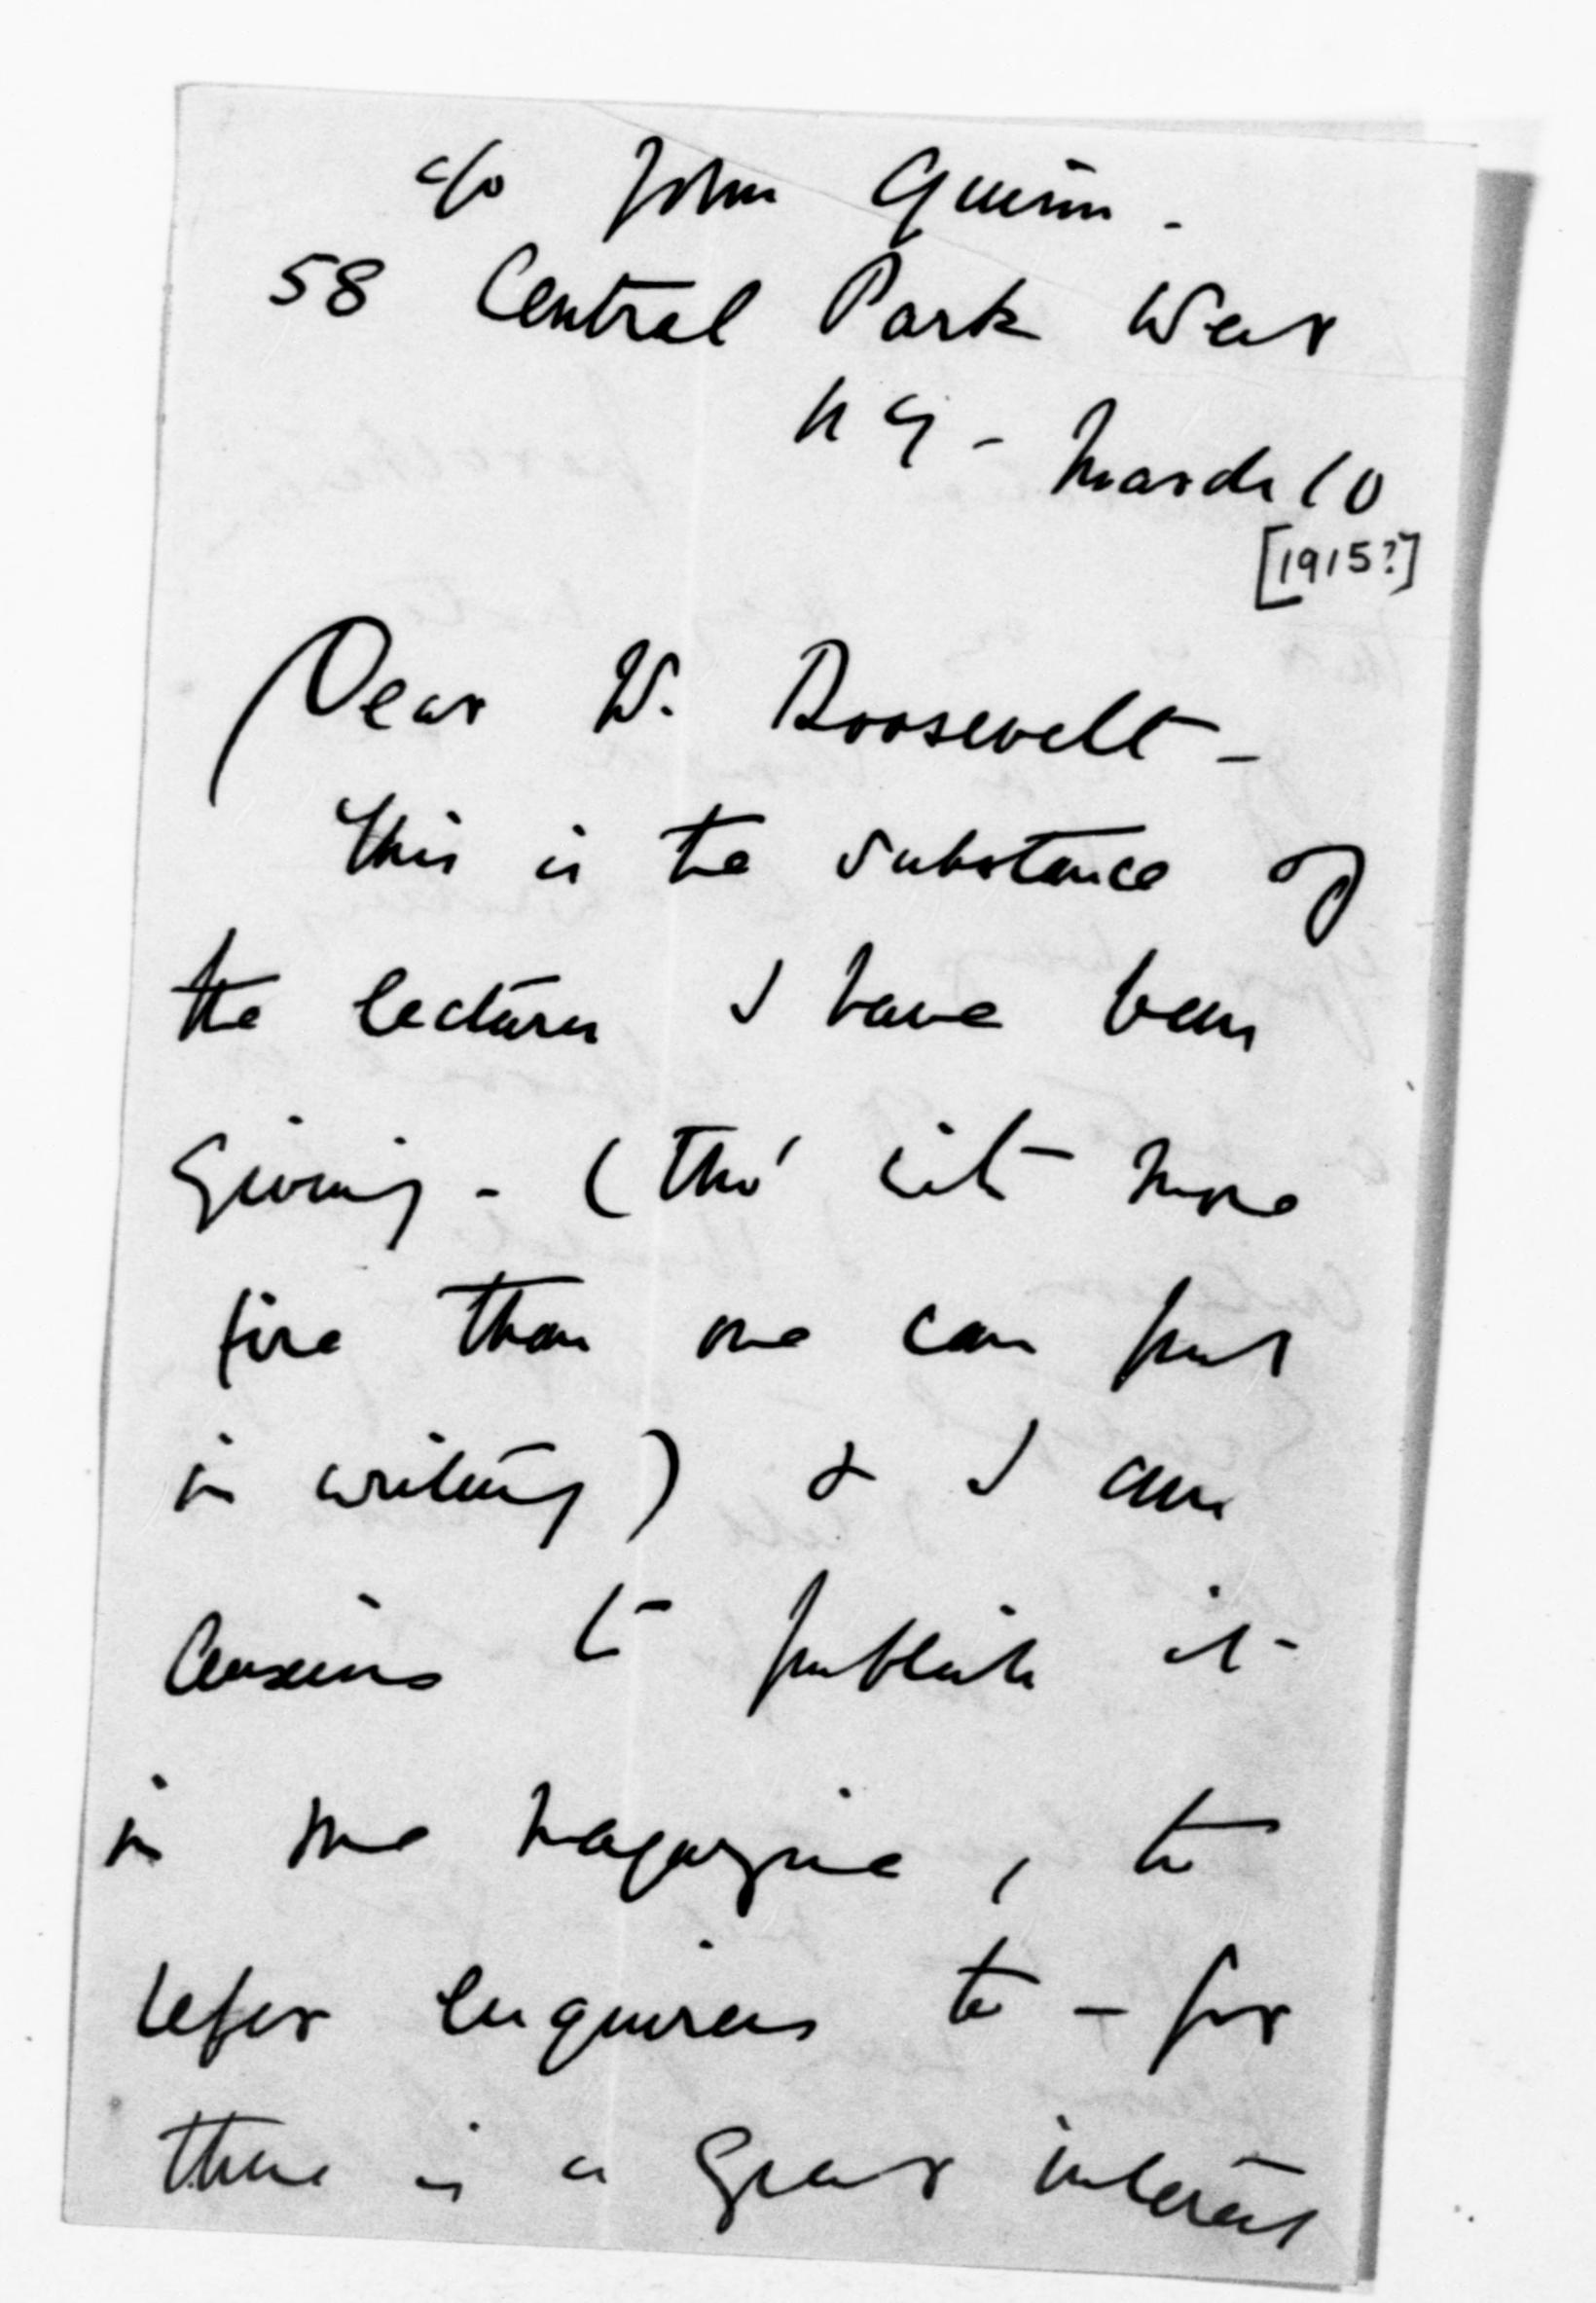 c/o John Quinn -
58 Central Park West
N Y - March 10
[1915?]
Dear Mr. Roosevelt -
This is the substance of
the lectures I have been
giving - (tho' with more
fire than one can put
in writing) & I am
anxious to publish it
in some magazine, to
refer enquirers to - for
there is a great interest